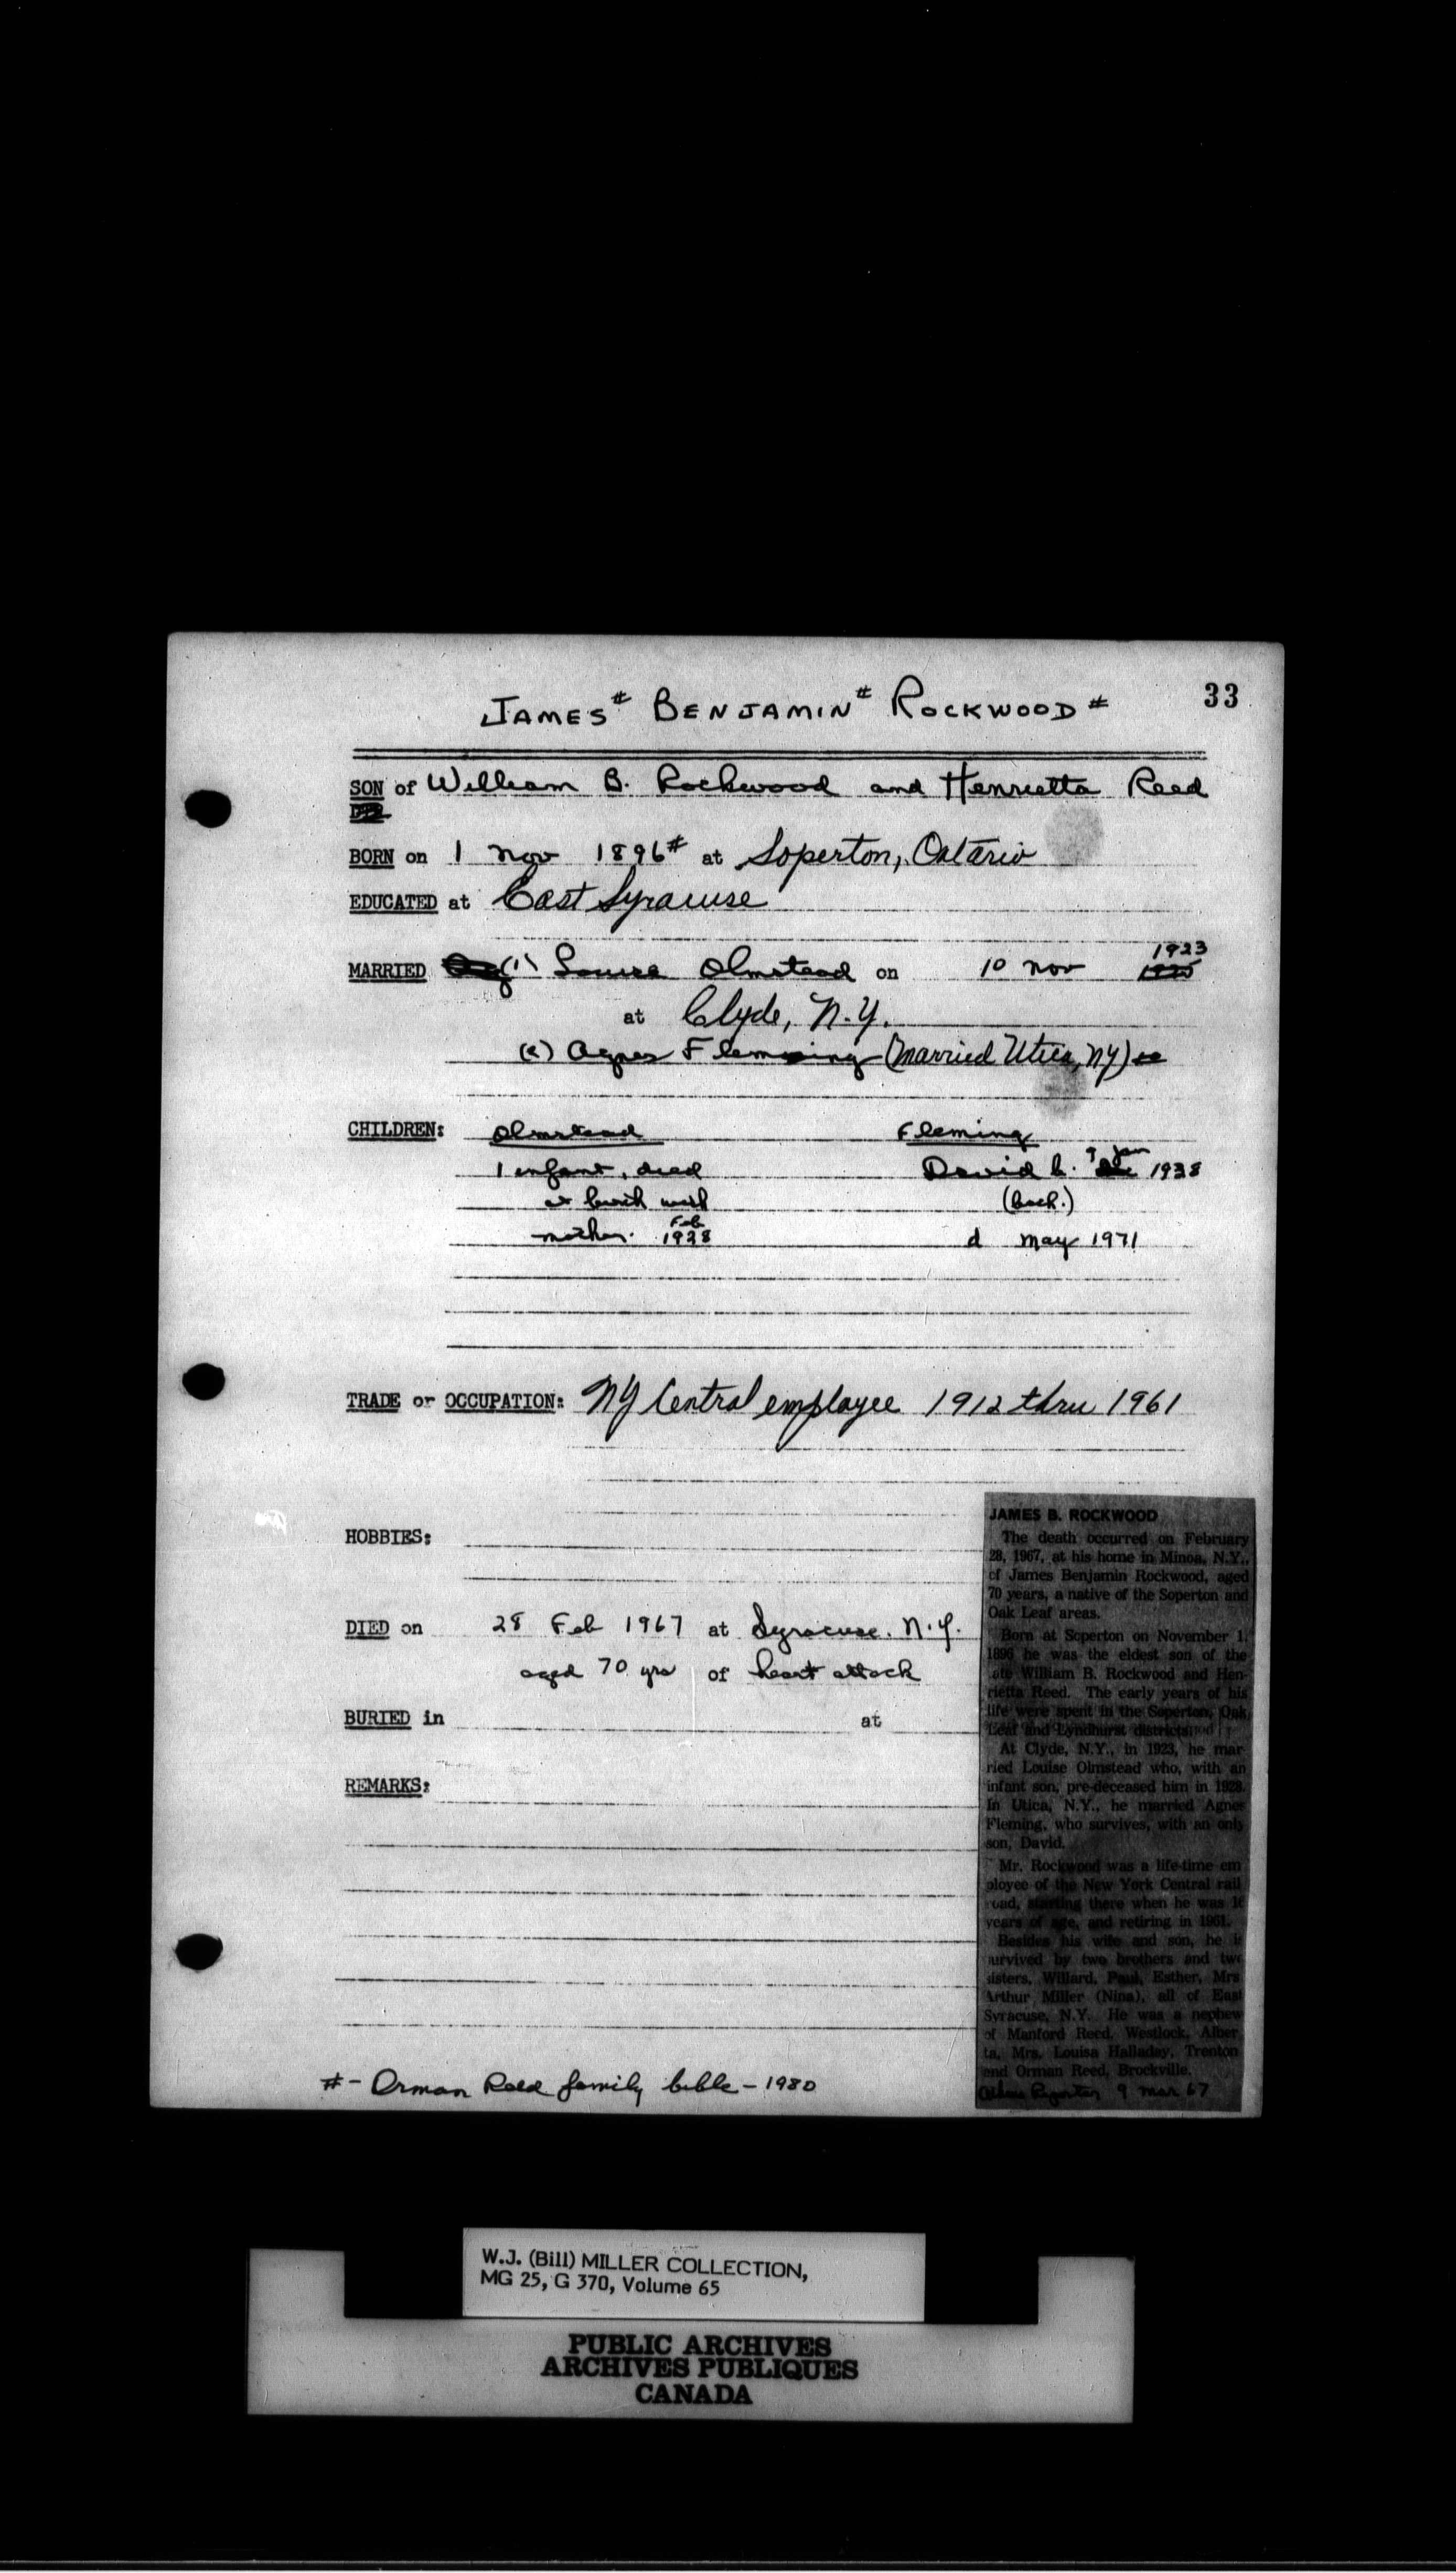 33
JAMES# BENJAMIN# ROCKWOOD#
SON of William B. Rockwood and Henrietta Reed
BORN on 1 Nov 1896# at Soperton, Ontario
EDUCATED at East Syracuse
1923
MARRIED (1) Louise Olmstead on 10 Nov
at Clyde, N.Y.
(2) Agnes Fleming (Married Utica, NY)
CHILDREN: Olmstead Fleming
1 infant, died David 9 Jan 1938
at birth with (bach.)
mother. Feb 1928 d May 1971
TRADE or OCCUPATION: NY Central employee 1912 thru 1961
HOBBIES:
DIED on 28 Feb 1967 at Syracuse. N.Y.
aged 70 yrs of heart attack
BURIED in at
REMARKS:
#- Orman Reed family bible - 1980
JAMES B. ROCKWOOD
The death occurred on February
28, 1967, at his home in Minoa, N.Y.,
of James Benjamin Rockwood, aged
70 years, a native of the Soperton and
Oak Leaf areas.
Born at Soperton on November 1,
1896 he was the eldest son of the
late William B. Rockwood and Hen-
rietta Reed. The early years of his
life were spent in the Soperton, Oak
Leaf and Lyndhurst districts.
At Clyde, N.Y., in 1923, he mar
ried Louise Olmstead who, with an
infant son, pre-deceased him in 1928.
In Utica, N.Y., he married Agnes
Fleming, who survives, with an only
son, David.
Mr. Rockwood was a life-time em
ployee of the New York Central rail
road, starting there when he was 16
years of age, and retiring in 1961.
Besides his wife and son, he is
survived by two brothers and two
sisters, Willard, Paul, Esther, Mrs
Arthur Miller (Nina), all of East
Syracuse, N.Y. He was a nephew
of Manford Reed, Westlock, Alber
ta, Mrs. Louisa Halladay, Trenton
and Orman Reed, Brockville.
Athens Reporter 9 Mar 67
W.J. (Bill) MILLER COLLECTION,
MG 25, G 370, Volume 65
PUBLIC ARCHIVES
ARCHIVES PUBLIQUES
CANADA